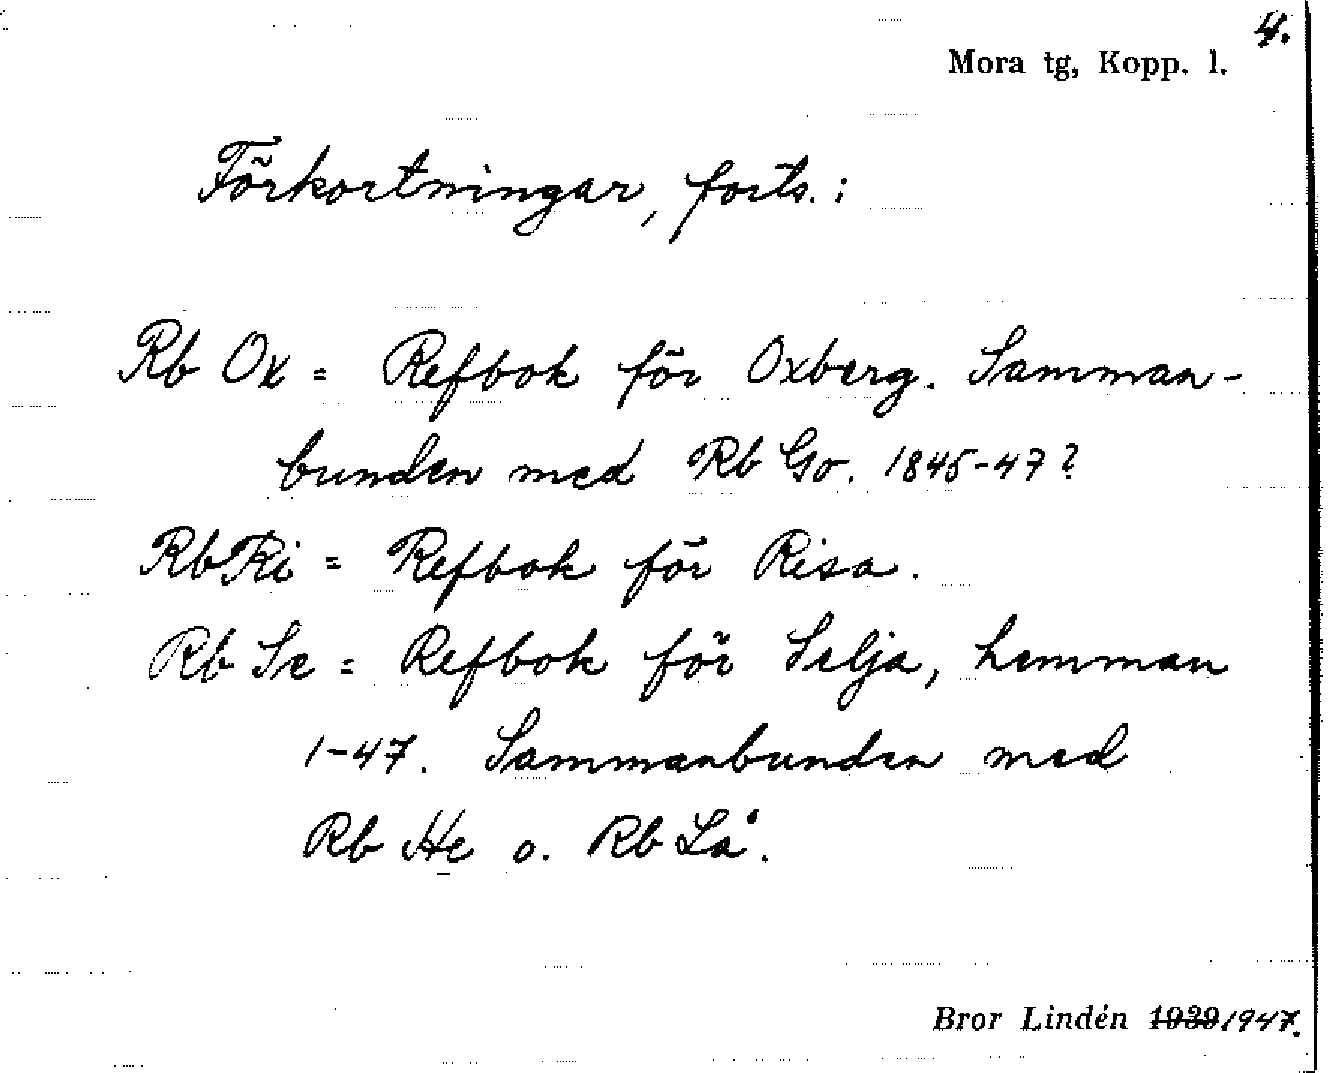 4.
Mora tg, Kopp. l.
Förkortningar, forts.:
Rb Ox = Refbok för Oxberg. Samman-
bunden med Rb Go. 1845-47?
Rb Ri = Refbok för Risa.
Rb Se = Refbok för Selja, hemman
1-47. Sammanbunden med
Rb He o. Rb Lå.
Bror Lindén 1939 1947.